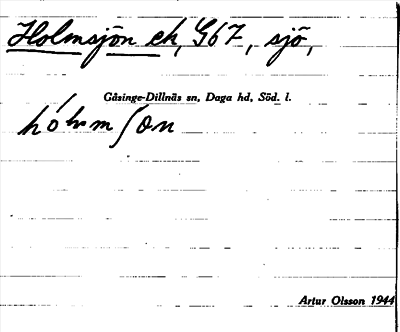 Holmsjön ek, G67, sjö,
Gåsinge-Dillnäs sn, Daga hd, Söd. l.
Artur Olsson 1944